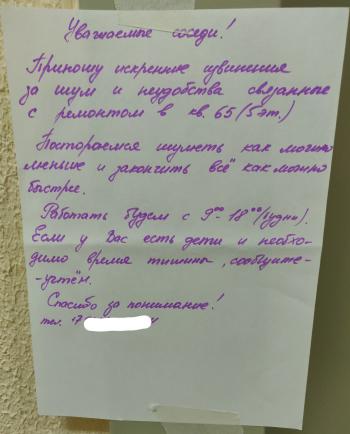 Уважаемые соседи!
Приношу искренние извинения
за шум и неудобства связанные
с ремонтом в кв. 65 (5 эт.)
Постараемся шуметь как можно
меньше и закончить всё как можно
быстрее.
Работать будем с 9⁰⁰-18⁰⁰ (будни).
Если у Вас есть дети и необхо-
димо время тишины, сообщите-
-учтём.
Спасибо за понимание!
тел.